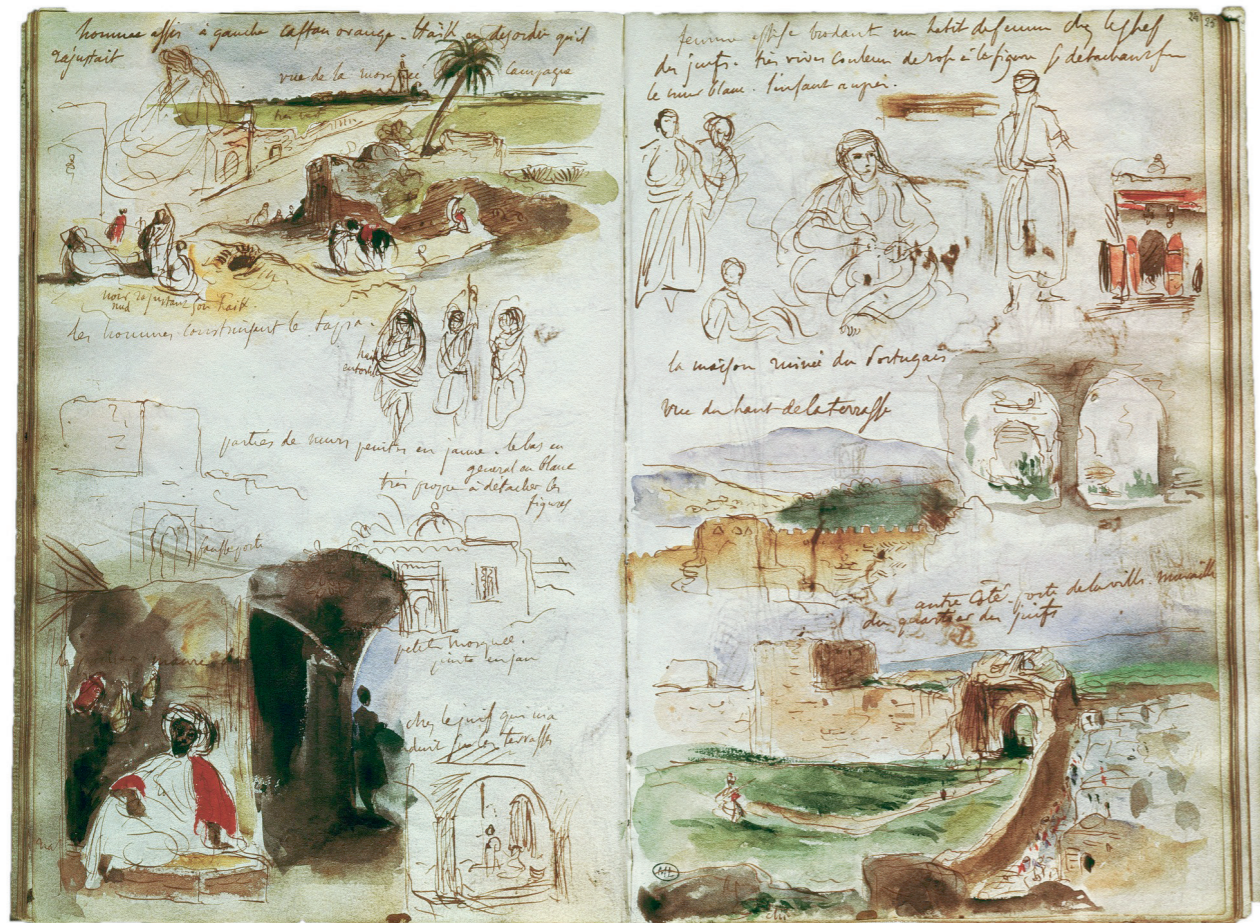 hommes assis à gauche caftan orange. haïk en désordre qu'il
rajustait
vue de la mosquée campagne
très vert
noir rajustant son haïk.
nud
les hommes construisent le
parties de murs peintes en jaune. le bas en
général en blanc
très propre à détacher les
figures
fausse porte
petite mosquée.
peinte en jau
chez le juif qui m'a
duit sur les terrasses
24 25
femme assise brodant un habit de femme chez le chef
des juifs. très vives couleurs de rose à la figure se détachant sur
le mur blanc. l'enfant auprès.
la maison ruinée du Portugais
vue du haut de la terrasse
autre côté. porte de la ville. muraille
du quartier des juifs
ML